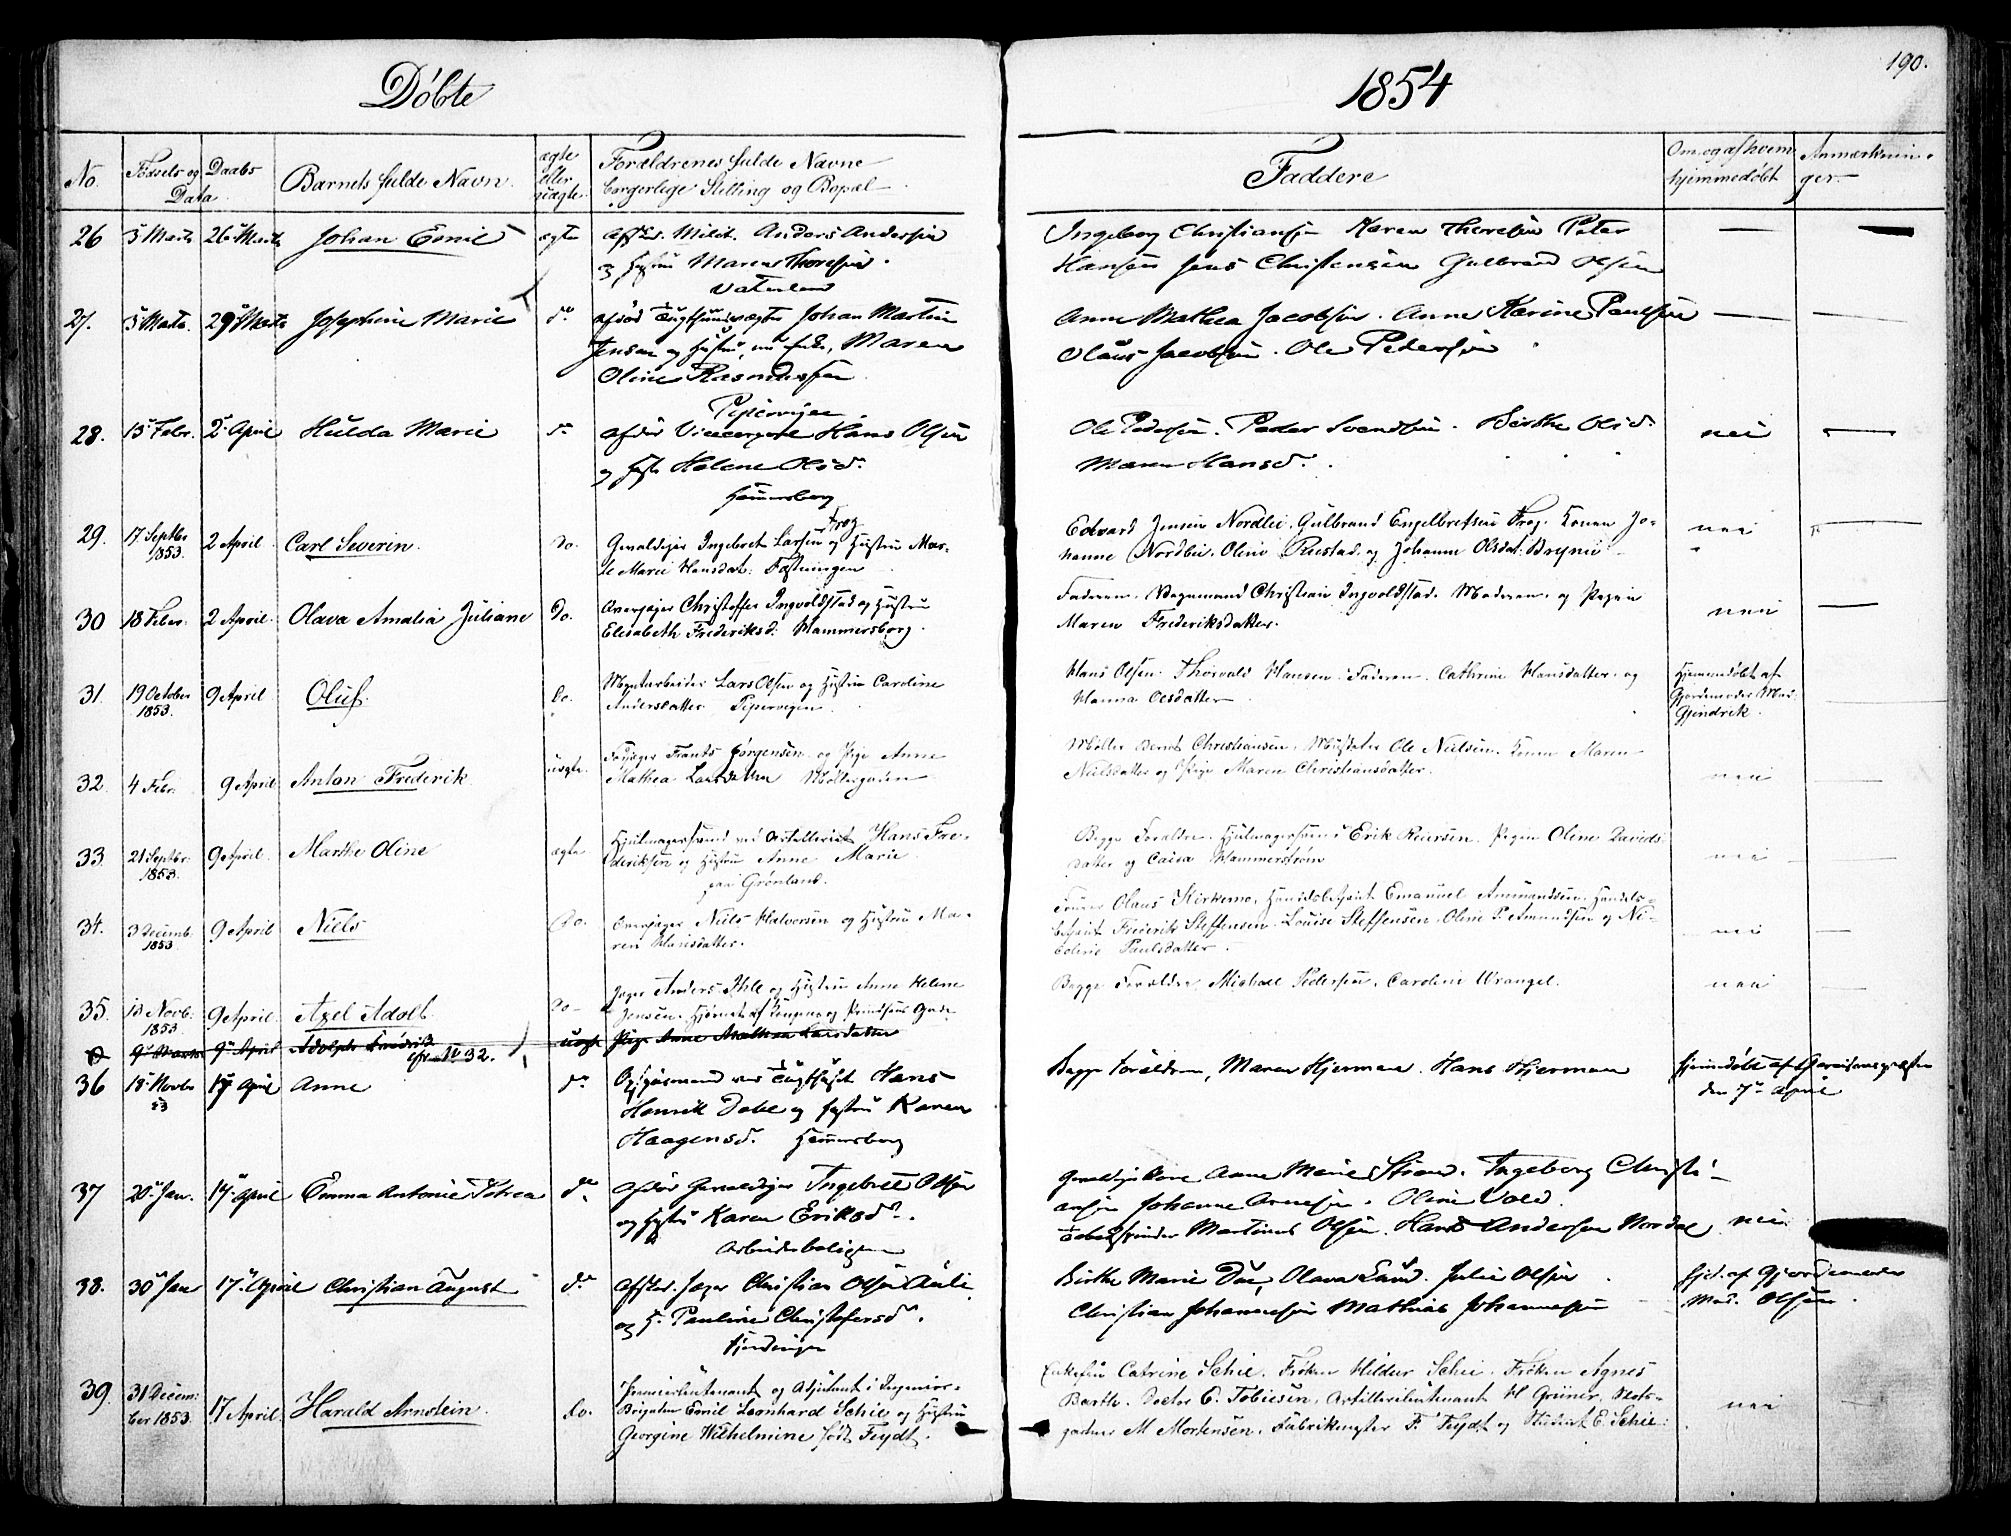 Döbte
1854
190.
No.
Födsels og Daabs
Data
Barnets fulde Navn.
ægte eller uægte
Forældrenes fulde Navne
borgerlige Stilling og Bopæl
Faddere
Om og af hvem
hjemmedöbt
Anmærknin-
ger.
26 5 Marts 26 Marts Johan Emil ægte Milit. Anders Andersen
og Hustru Maren Thoresen.
Vaterland
Ingeborg Christiansen Karen Thoresen Peter
Hansen Jens Christensen Gulbrand Olsen
27. 5 Marts. 29 Marts Josephine Marie do Johan Martin
Jensen og Hustru, nu Enke, Maren
Oline Rasmussen
Anne Mathea Jacobsen. Anne Karine Paulsen
Olaus Jacobsen. Ole Pedersen
28. 15 Febr. 2 April Hulda Marie do
Pipervigen
afdöd Vicecorporal Hans Olsen
og Hustru Helene Olsd.
Hammersborg
Ole Pedersen. Peder Svendsen. Birthe Olsd.
Maren Hansd.
nei
29. 17 Septbr 1853. 2 April Carl Severin. Do. Gevaldiger Ingebret Larsen Frog og Hustru Mar-
te Marie Hansdat: Fæstningen
Edvard Jensen Nordlie, Gulbrand Engelbretsen Frog. Konen Jo-
hanne Nordlie. Oline Rustad og Johanne Olsdat: Bryni
nei
30 18 Febr. 2 April. Olava Amalia Juliane Do. Overjæger Christoffer Ingvoldstad og Hustru
Elisabeth Frederiksd: Hammersborg.
Faderen. Vognmand Christian Ingvoldstad. Moderen. og Pigen
Maren Frederiksdatter.
nei
31. 19 October 1853. 9 April Oluf. Do. Myntarbeider Lars Olsen og Hustru Caroline
Andersdatter Pipervigen
Hans Olsen. Thorvald Hansen. Faderen. Cathrine Hansdatter. og
Hanna Olsdatter
Hjemmedöbt af
Gjordemoder Mad.
Gjendrik.
32. 4 Febr. 9 April Anton Frederik uægte. Frants Jørgensen og Pige Anne
Mathea Larsdatter Möllergaden
Möller Bernt Christiansen. Ole Nielsen. Konen Maren
Nielsdatter og Pige Maren Christiansdatter.
nei
33. 21 Septbr. 1853. 9 April. Marthe Oline ægte Hjulmagersvend ved Artilleriet Hans Fre-
deriksen og Hustru Anne Marie
paa Grönland.
Begge Forældre. Hjulmagersvend Erik Reiersen. Pigen Oline Davids-
datter og Caisa Hammerström
nei
34. 3 Decemb. 1853 9 April Niels Do. Overjæger Niels Halvorsen og Hustru Ma-
ren Hansdatter.
Olaus Kirkemo, Handelsbetjent Emanuel Ammundsen. Handels-
betjent Frederik Steffensen. Louise Steffensen. Oline P. Amundsen og Ni-
coline Paulsdatter.
nei
35. 13 Novb. 1853. 9 April. Axel Adolf. Do Jæger Anders Ihle og Hustru Anne Helene
Jensen. Hjörnet af Kongens og Prindsens Gade
Begge Forældre. Michael Pedersen. Caroline Wrangel.
nei
9 Marts 9 April Adolph Fredrik cfr No 32. uægte Pige Anne Mathea Larsdatter
36 18 Novbr 53 17 April Anne do Opsynsmand ved Tugthuset Hans
Henrik Dobe og Hustru Karen
Haagensd. Hammersborg
Begge Forældrene, Maren Hjerman. Hans Hjerman
Hjemdöbt af Garnisonspræsten
den 7de April
37 20 Jan. 17 April Emma Antonie Petrea do Afdöd Gevaldiger Ingebret Olsen
og Hustru Karen Eriksd.
Arbeiderboligen
Anne Marie Strøm. Ingeborg Christi-
ansen Johanne Arnesen. Oline Vold.
Martinus Olsen. Hans Andersen Nordal
nei
38. 30 Jan 17 April Christian August do Jæger Christian Olsen Auli
og H. Pauline Christofersd.
Fjerdingen
Birthe Marie Due, Olava Lund. Julie Olsen
Christian Johannesen Mathias Johannesen
Hjd. af Gjordemoder
Mad. Olsen.
39. 31 Decem-
ber 1853. 17 April. Harald Arnstein. do. Premierlieutenant og Adjutant i Ingenieur-
Brigaden Emil Leonhard Schie og Hustru
Georgine Wilhelmine född Feydt.
Enkefru Catrine Schie. Fröken Hildur Schie. Fröken Agnes
Barth. Doctor E. Tobiesen, Artillerilieutenant H Grüner, Slots-
gartner M Mortensen. Fabrikmester F. Feydt og Student E. Schie.
nei